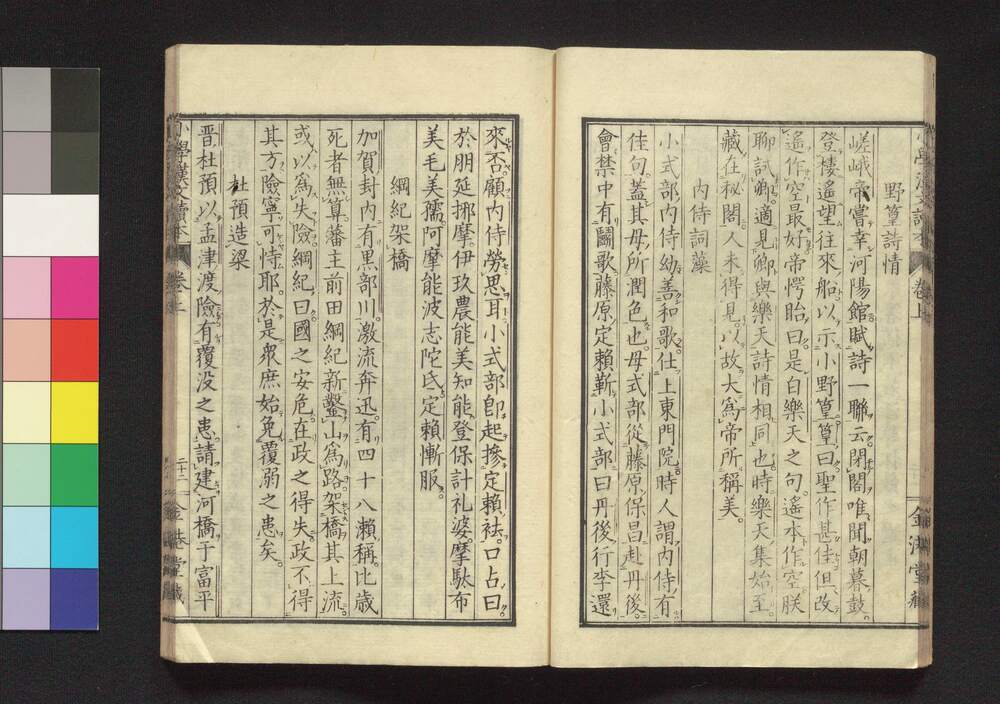 野篁詩情
嵯峨帝嘗幸河陽館賦詩一聯云。閉閣唯聞朝暮鼓。
登樓遙望往來船。以示小野篁。篁曰。聖作甚佳。但改
遙作空最好。帝愕眙曰。是白樂天之句。遙本作空。朕
聊試卿。適見卿與樂天詩情相同也。時樂天集始至
藏在秘閣。人未得見。以故大爲帝所稱美。
內侍詞藻
小式部內侍幼善和歌。仕上東門院。時人謂內侍有
佳句。蓋其母所潤色也。母式部從藤原保昌赴丹後。
會禁中有鬭歌。藤原定賴靳小式部曰。丹後行李還
來否。顧內侍勞思耳。小式部卽起摻定賴袪。口占曰。
於朋延挪摩。伊玖農能美知能。登保計礼婆。摩駄布
美毛美孺。阿摩能波志陀氐。定賴慚服。
綱紀架橋
加賀封內有黑部川。激流奔迅。有四十八瀨稱。比歲
死者無算。藩主前田綱紀新鑿山爲路。架橋其上流。
或以爲失險。綱紀曰。國之安危。在政之得失。政不得
其方。險寧可恃耶。於是衆庶始免覆弱之患矣。
杜預造梁
晋杜預以孟津渡險有覆沒之患。請建河橋于富平
小學漢文讀本
卷上
二十二
金港堂藏